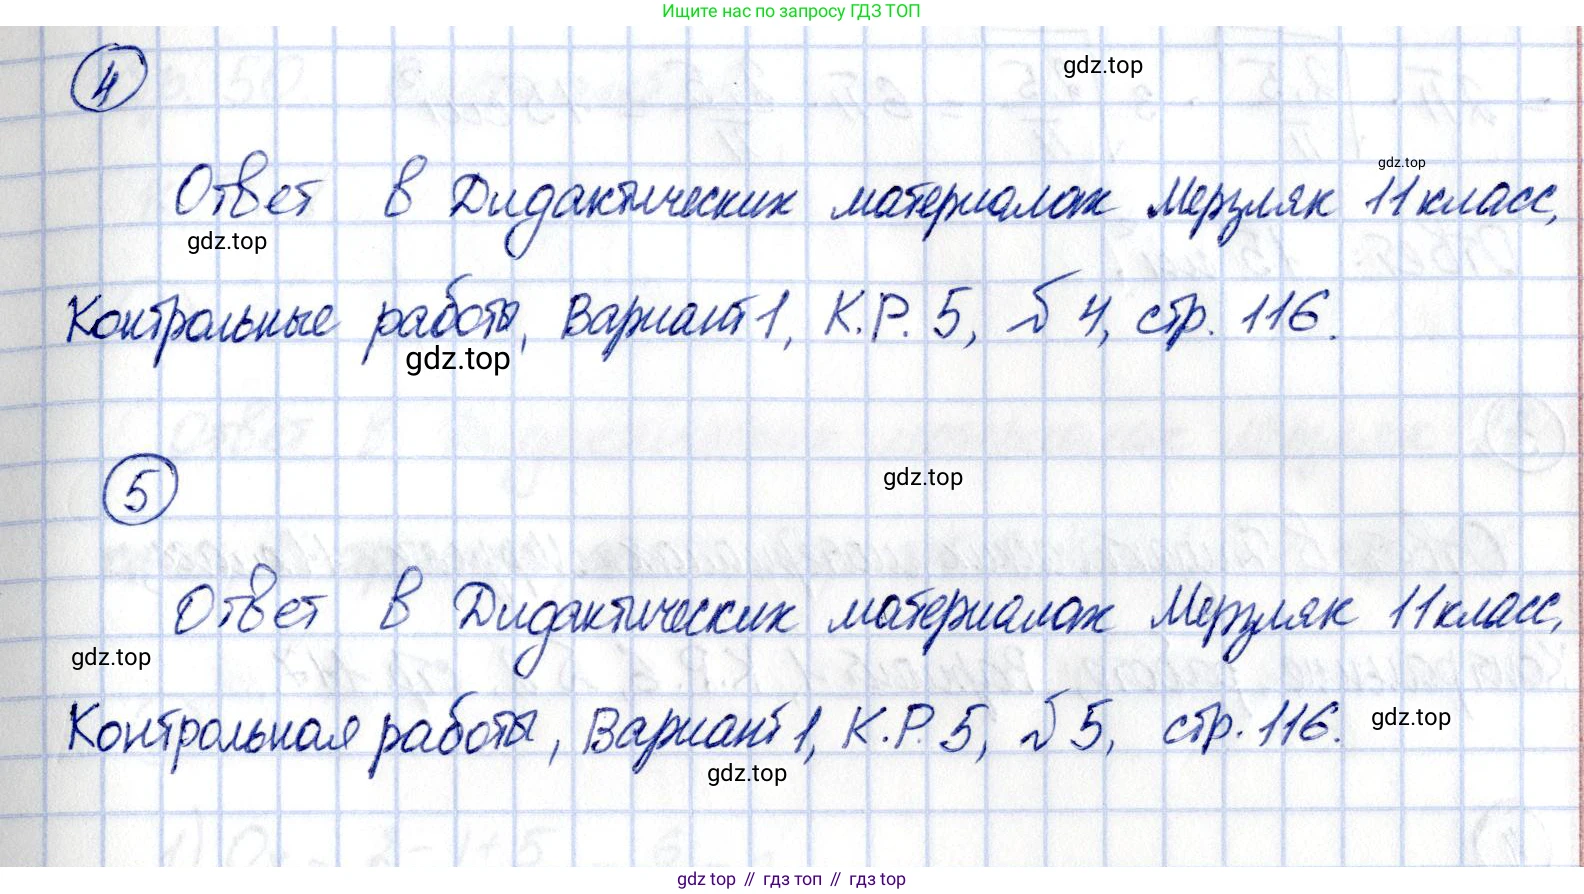 Ищите нас по запросу ГДЗ ТОП
4
gdz.top
gdz.top
Ответ в Дидактических материалах Мерзляк 11 класс,
gdz.top
Контрольные работы, Вариант 1, К.Р. 5, № 4, стр. 116.
gdz.top
5
gdz.top
Ответ в Дидактических материалах Мерзляк 11 класс,
gdz.top
Контрольная работы, Вариант 1, К.Р. 5, № 5, стр. 116.
gdz.top
gdz.top
gdz top // гдз топ // гдз top